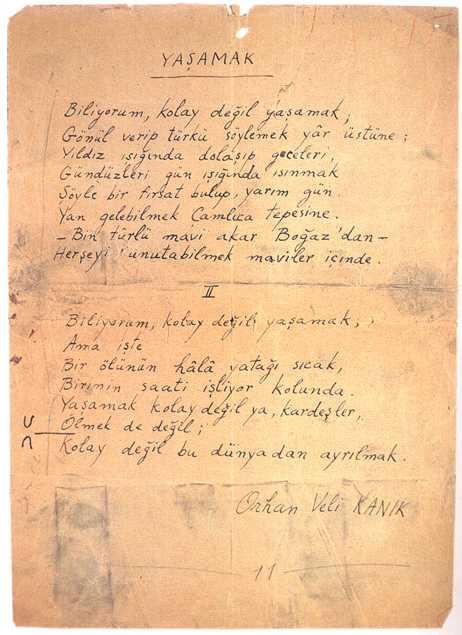 YAŞAMAK
Biliyorum, kolay değil yaşamak,
Gönül verip türkü söylemek yâr üstüne;
Yıldız ışığında dolaşıp geceleri,
Gündüzleri gün ışığında ısınmak
Şöyle bir fırsat bulup yarım gün.
Yan gelebilmek Çamlıca tepesine.
- Bin türlü mavi akar Boğaz'dan -
Herşeyi unutabilmek maviler içinde.
II
Biliyorum, kolay değil yaşamak,
Ama işte
Bir ölünün hâlâ yatağı sıcak,
Birinin saati işliyor kolunda.
Yaşamak kolay değil ya, kardeşler,
Ölmek de değil;
Kolay değil bu dünyadan ayrılmak.
Orhan Veli KANIK
11